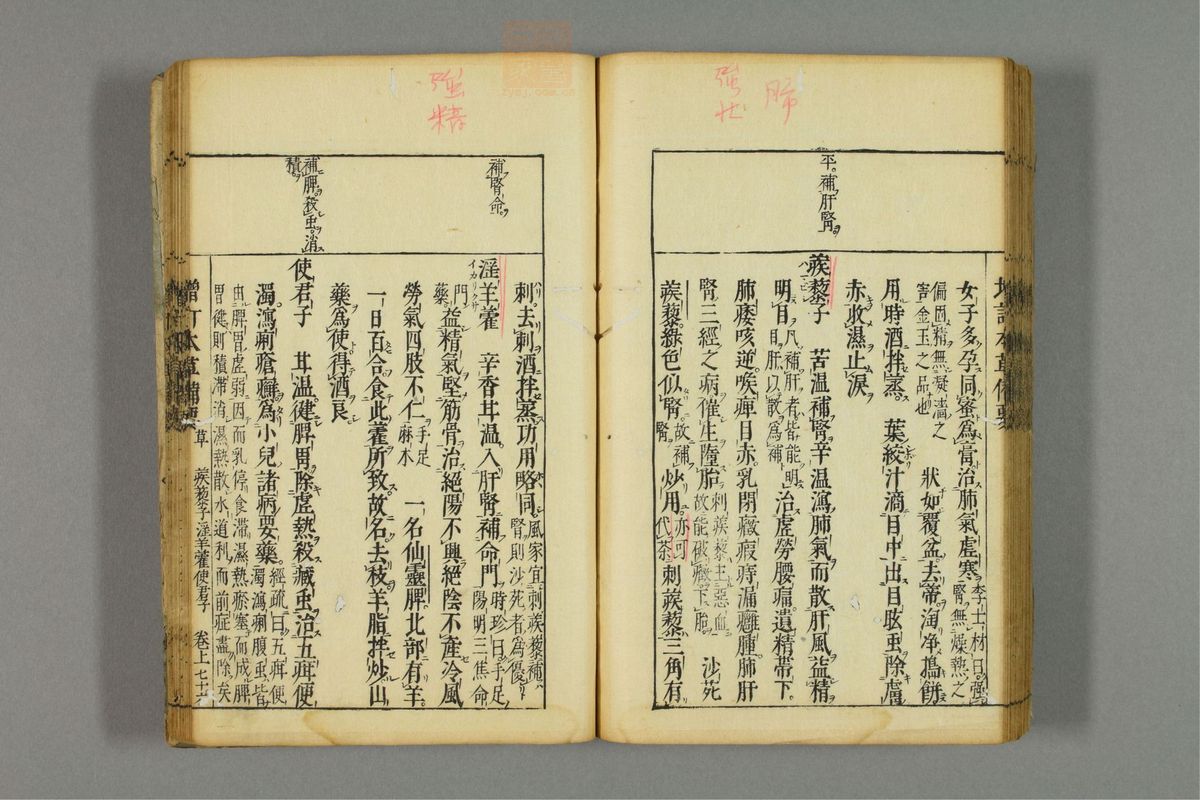 強壮
肺
平補肝腎
女子多孕同蜜為膏治肺氣虛寒 李士材曰強腎無燥熱之
偏固精無凝濇之害金玉之品也 狀如覆盆去蒂淘淨搗餅
用時酒拌蒸 葉絞汁滴目中出目眩虫除膚
赤收濕止淚
蒺藜子 苦溫補腎辛溫瀉肺氣而散肝風益精
明目 凡補肝者皆能明目肝以散為補 治虛勞腰痛遺精帶下
肺痿咳逆喉痺目赤乳閉癥瘕痔漏癰腫肺肝
腎三經之病催生墮胎 刺蒺藜主惡血故能破癥下胎 沙苑
蒺藜綠色似腎 故補腎 炒用 亦可代茶 刺蒺藜三角有
強精
補腎命
補脾殺虫消
積
刺去刺酒拌蒸功用略同 風家宜刺蒺藜補腎則沙苑者為優
淫羊藿 辛香甘溫入肝腎補命門 時珍曰手足陽明三焦命
イカリクサ
門藥 益精氣堅筋骨治絕陽不興絕陰不産冷風
勞氣四肢不仁 手足麻木 一名仙靈脾北部有羊
一日百合食此藿所致故名去枝羊脂拌炒山
藥為使得酒良
使君子 甘溫健脾胃除虛熱殺臟虫治五疳便
濁瀉痢瘡癬為小兒諸病要藥 經疏曰五疳便濁瀉痢腹虫皆
由脾胃虛弱因而乳停食滯濕熱瘀塞而成脾
胃健則積滯消濕熱散水道利而前症盡除矣
增訂本草備要 草 蒺藜子淫羊藿使君子 卷上七十